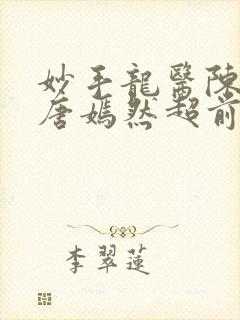 妙手龍醫陳
唐嫣然超前
李翠蓮